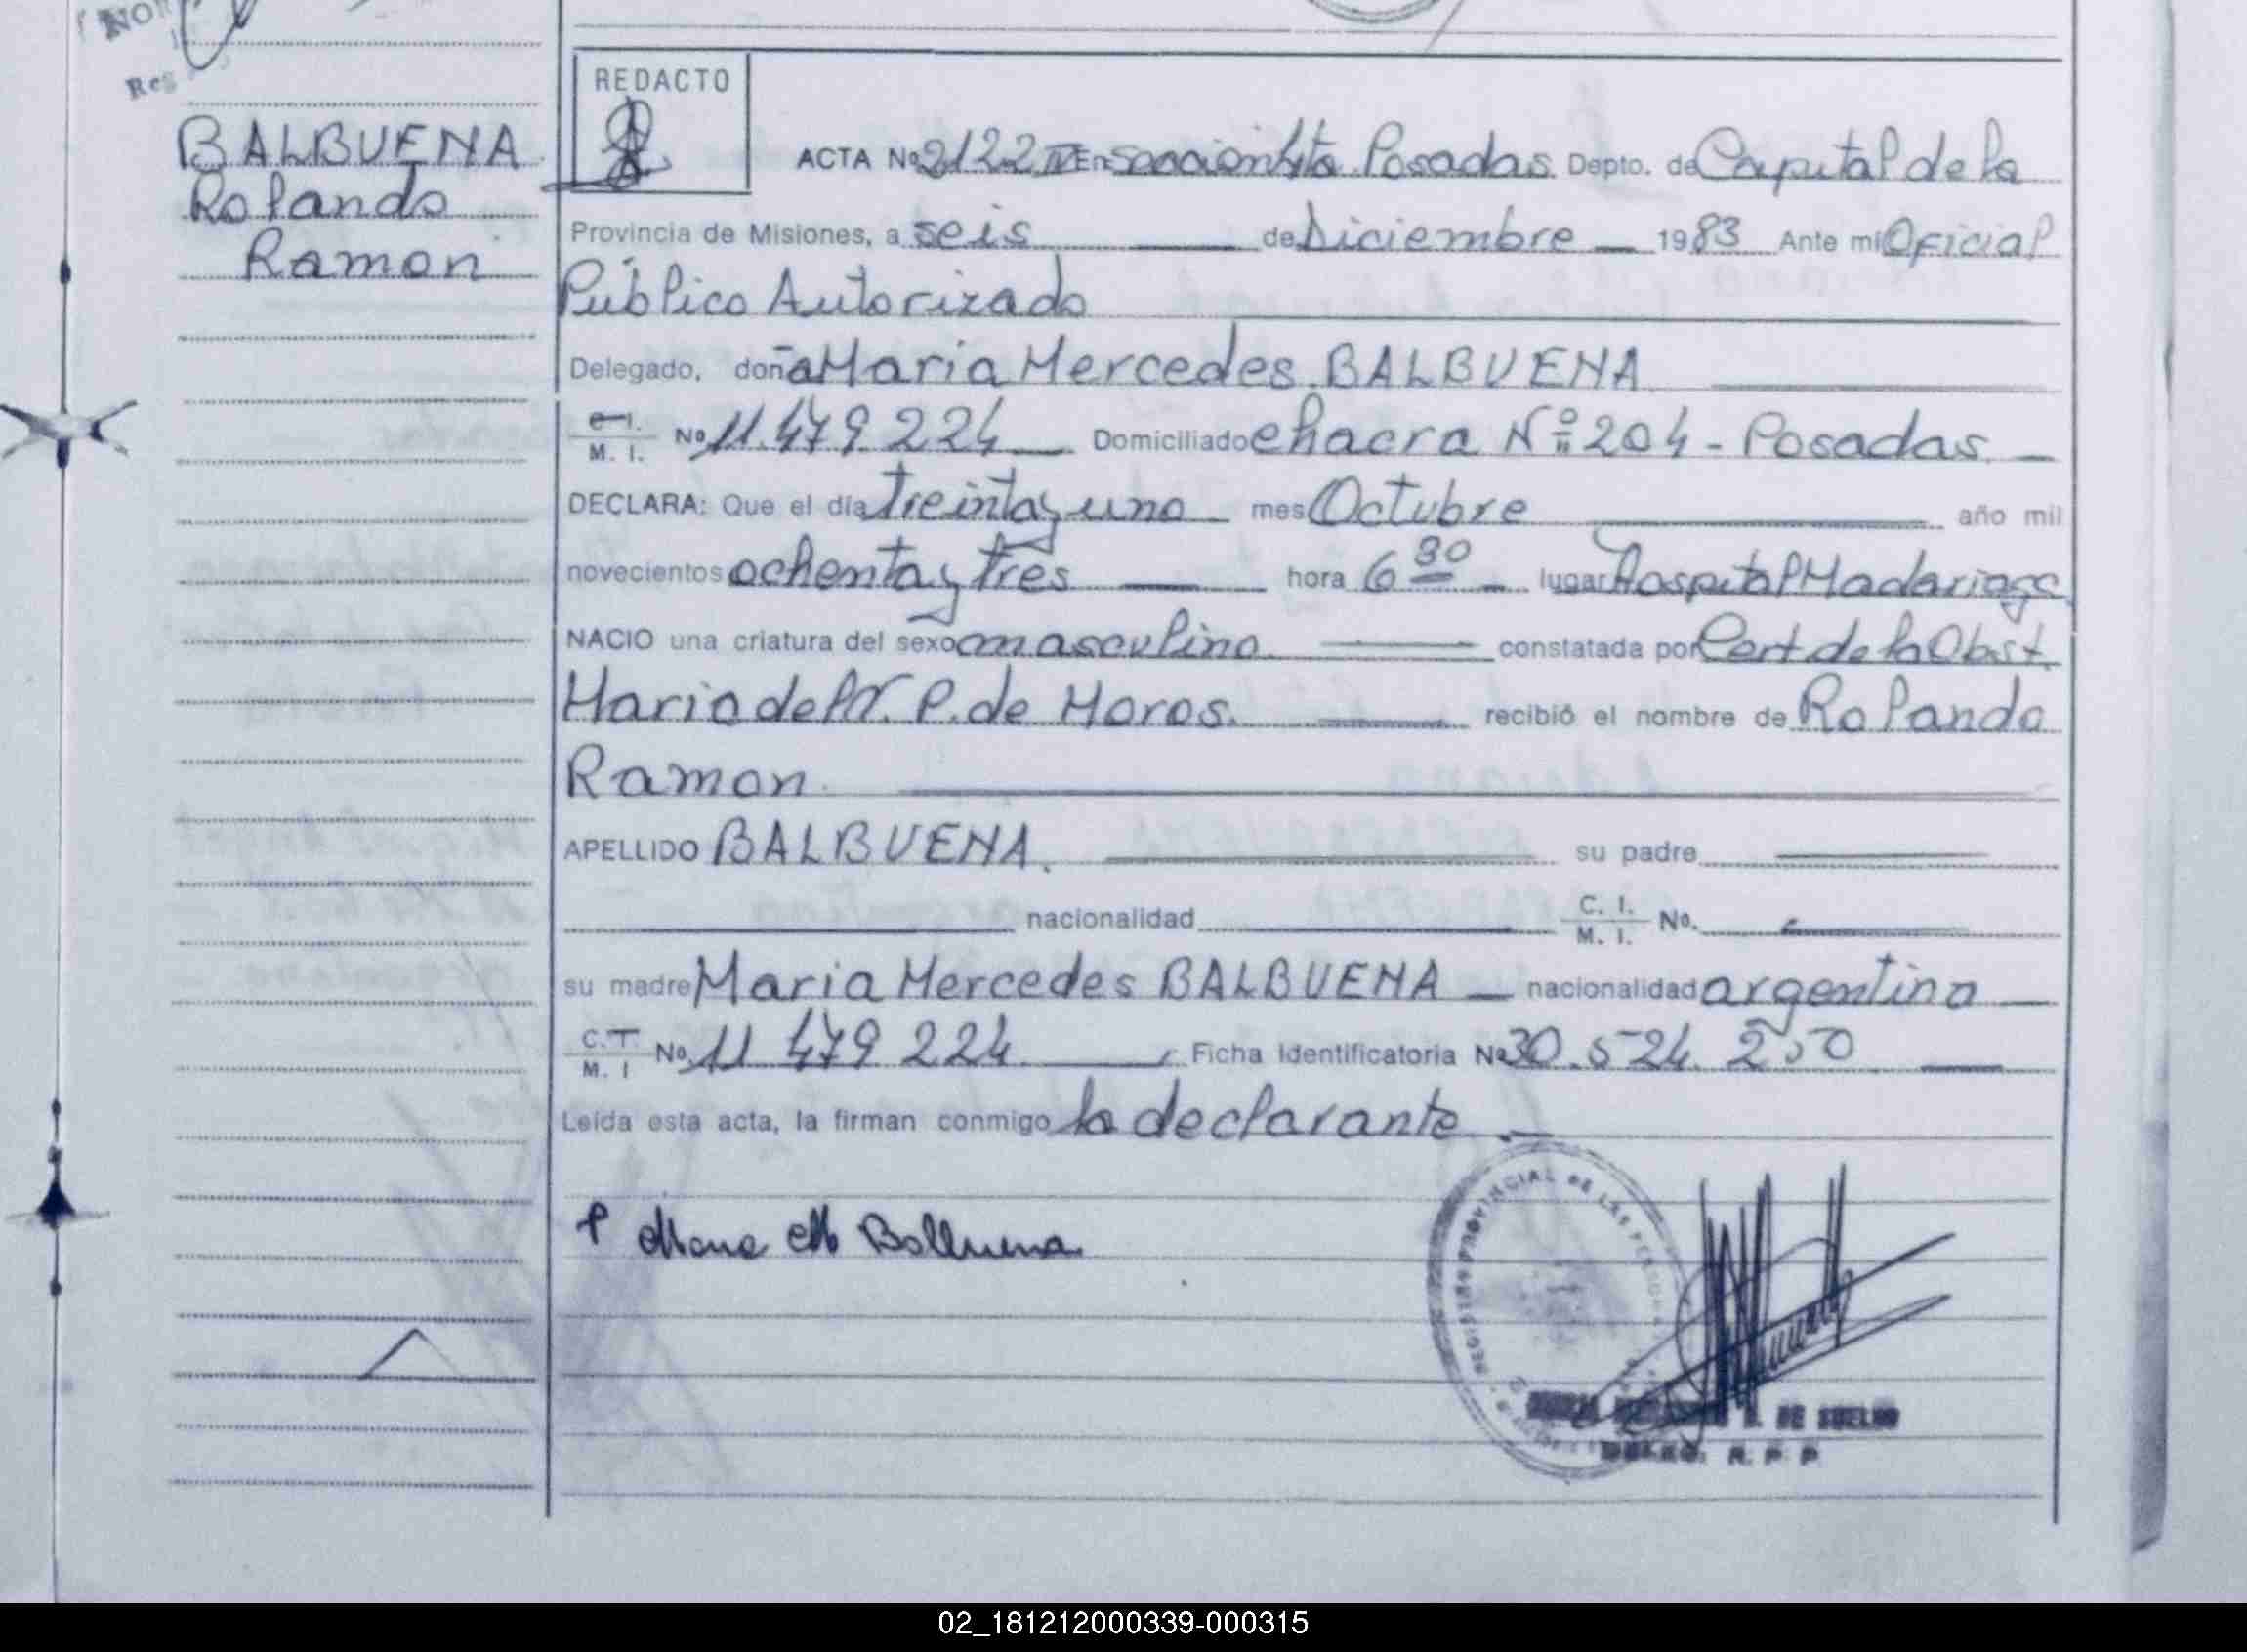 BALBUENA
Rolando
Ramon
REDACTO
ACTA No 2122 IV En seccion 4ta Posadas Depto. de Capital de la
Provincia de Misiones, a seis de Diciembre 1983 Ante mi Oficial
Público Autorizado
Delegado, doña Maria Mercedes BALBUENA
C. I.
M. I. No 11.479.224 Domiciliado chacra Nº 204 - Posadas.
DECLARA: Que el día treinta y uno mes Octubre año mil
novecientos ochenta y tres hora 6 30 lugar Hospital Madariaga
NACIO una criatura del sexo masculino constatada por Cert de la Obst.
Maria del P. de Moros. recibió el nombre de Rolando
Ramon.
APELLIDO BALBUENA. su padre
nacionalidad C. I.
M. I. No.
su madre Maria Mercedes BALBUENA nacionalidad argentina
C. I.
M. I No. 11 479 224 Ficha Identificatoria No 30.524.250
Leída esta acta, la firman conmigo la declarante
Maria M Balbuena
REGISTRO PROVINCIAL DE LAS PERSONAS
DE SUELDO
R. P. P
02_181212000339-000315